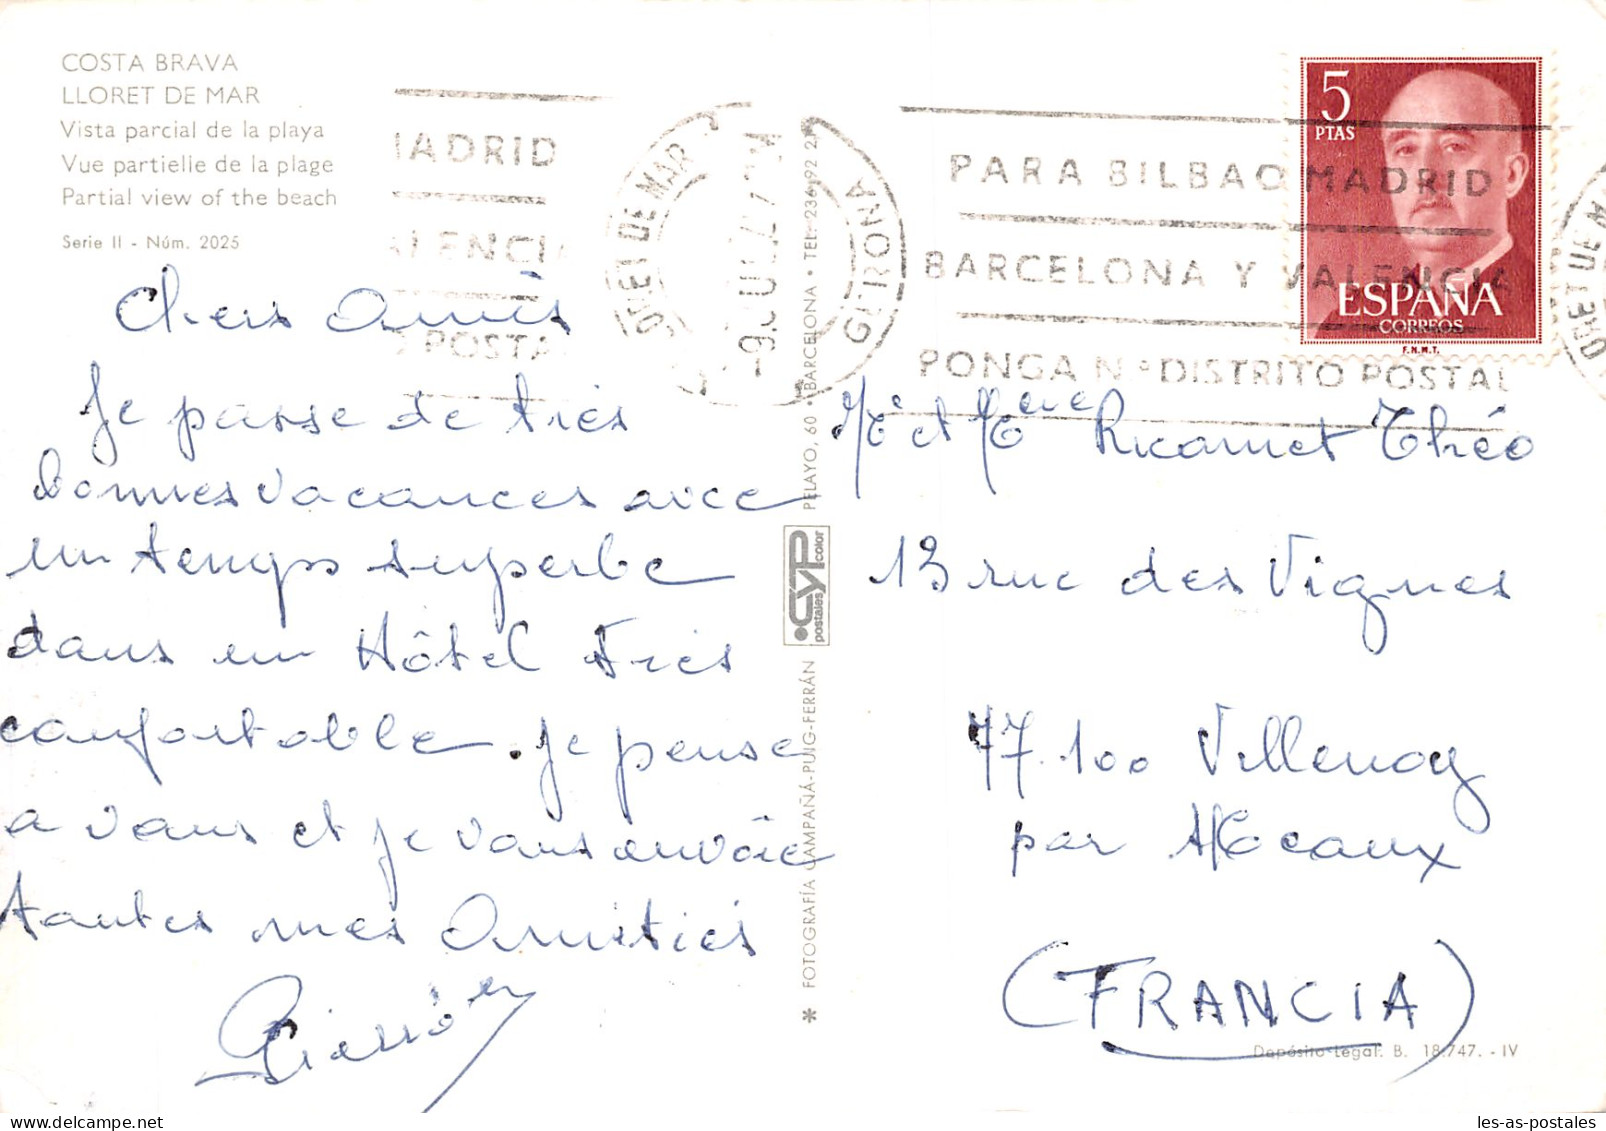 COSTA BRAVA
LLORET DE MAR
Vista parcial de la playa
Vue partielle de la plage
Partial view of the beach
Serie II - Núm. 2025
Chers Amis
Je passe de très
bonnes vacances avec
un temps superbe
dans un Hôtel très
confortable. Je pense
a vous et je vous envoie
toutes mes Amitiés
ADRID
ALENCIA
POSTA
ORET DE MAR
GERONA
PARA BILBAO MADRID
BARCELONA Y VALENCIA
PONGA Nº DISTRITO POSTAL
5
PTAS
ESPAÑA
CORREOS
F.N.M.T.
ORET DE M
PELAYO, 60 • BARCELONA • TEL. 236 92 2
CYP
color
postales
* FOTOGRAFÍA CAMPAÑÁ-PUIG-FERRÁN
Mr et Mme Ricamet Théo
13 rue des Vignes
77.100 Villenoy
par Meaux
(FRANCIA)
Depósito Legal. B. 18.747. - IV
les-as-postales